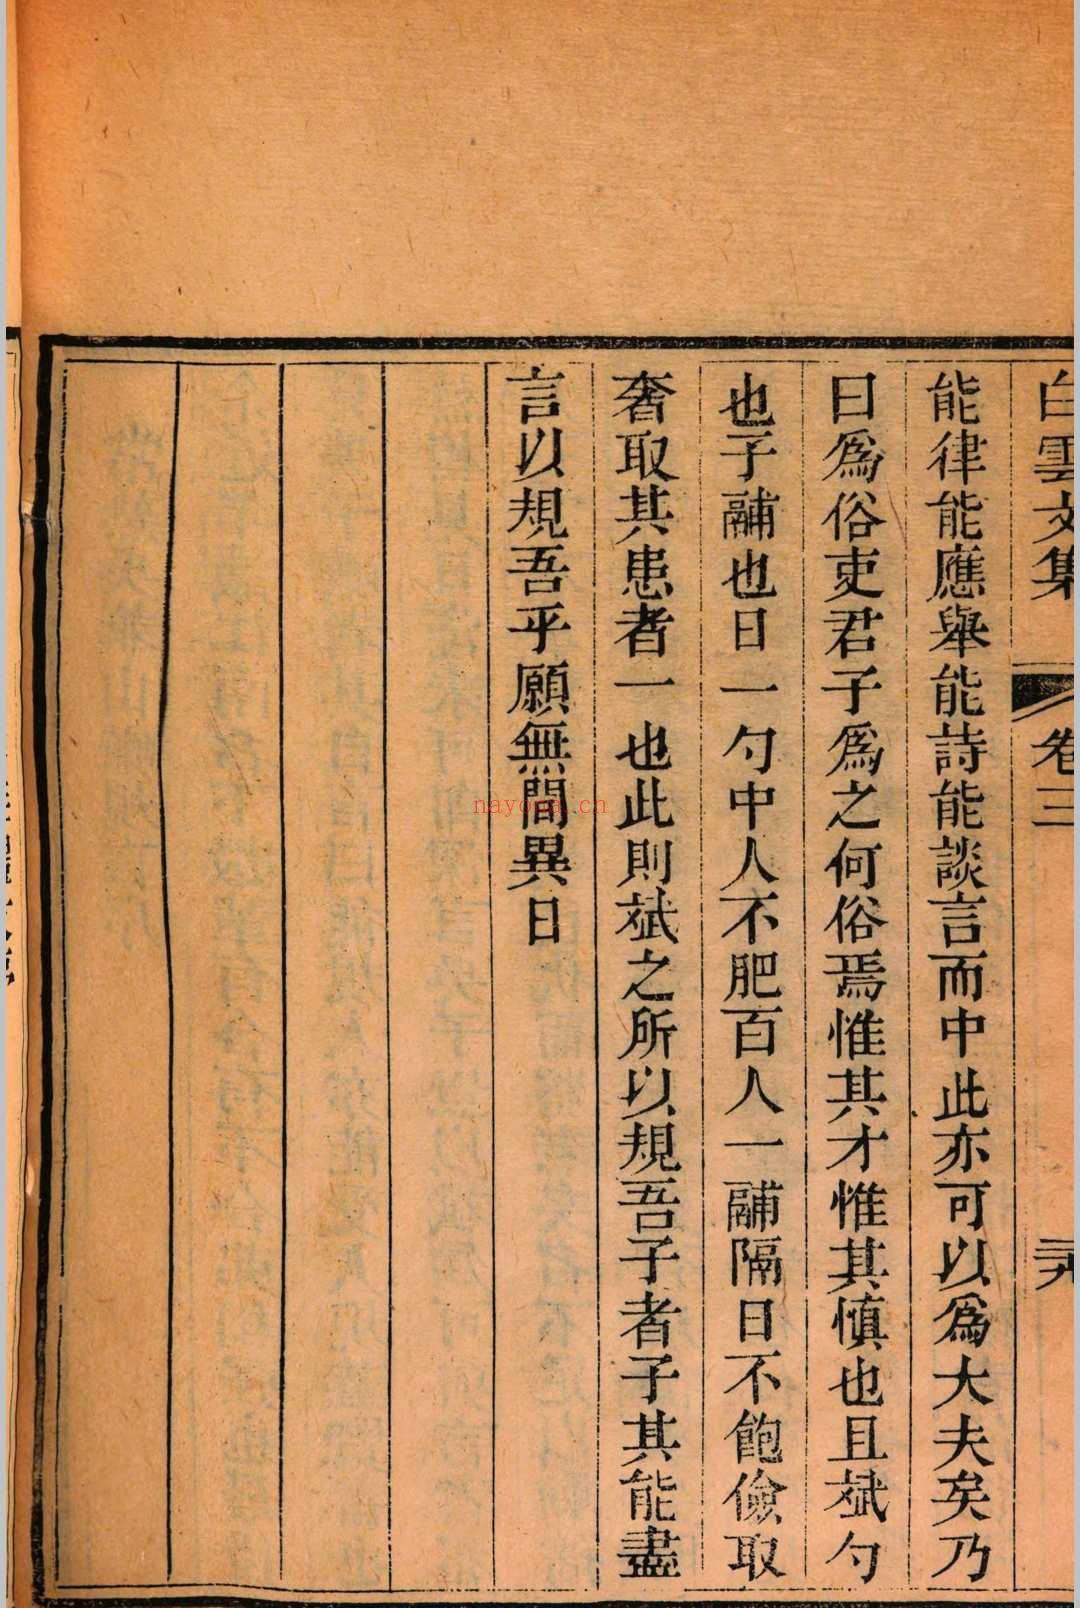 白雲文集 卷三
能律能應舉能詩能談言而中此亦可以爲大夫矣乃
曰爲俗吏君子爲之何俗焉惟其才惟其慎也且斌勺
也子鬴也日一勺中人不肥百人一鬴隔日不飽儉取
奢取其患者一也此則斌之所以規吾子者子其能盡
言以規吾乎願無間異日
nayona.cn